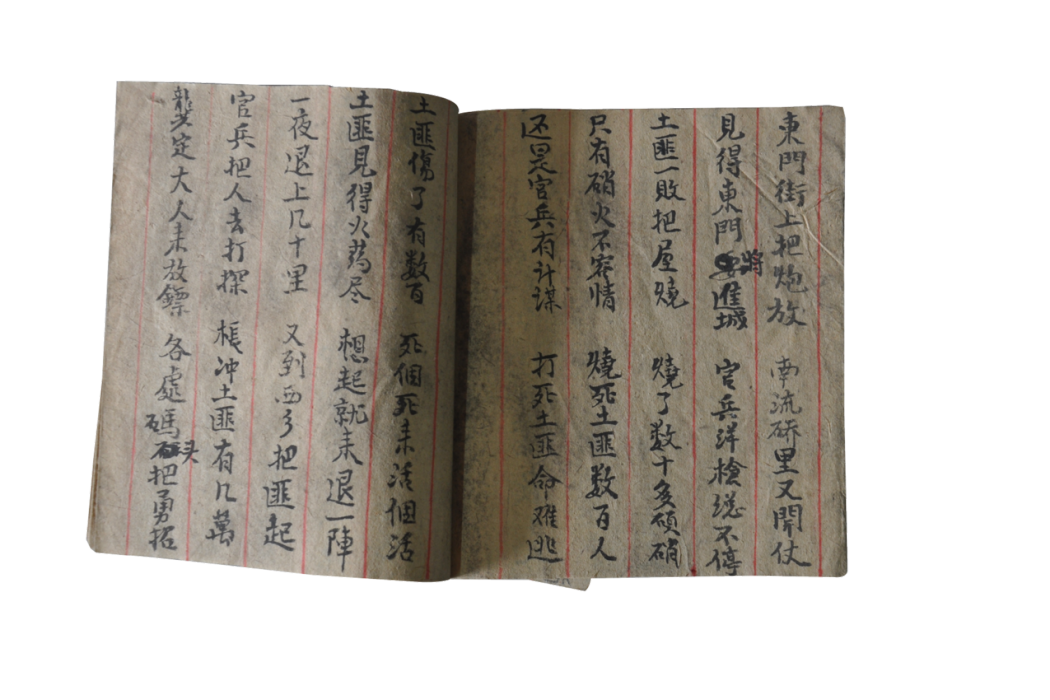 東門街上把炮放 南流硚里又開仗
見得東門將進城 官兵洋槍總不停
土匪一敗把屋燒 燒了数十多硕硝
只有硝火不容情 燒死土匪数百人
还是官兵有计谋 打死土匪命难逃
土匪傷了有数百 死個死未活個活
土匪見得火药尽 想起就来退一陣
一夜退上几十里 又到西乡把匪起
官兵把人去打探 帳冲土匪有几萬
龔定大人未放鏢 各處碼头把勇招